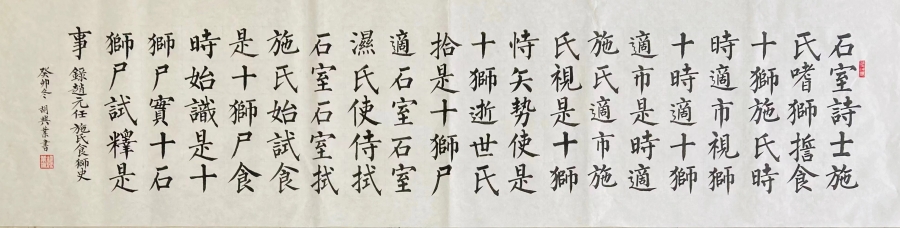 石室詩士施
氏嗜獅誓食
十獅施氏時
時適市視獅
十時適十獅
適市是時適
施氏適市施
氏視是十獅
恃矢勢使是
十獅逝世氏
拾是十獅尸
適石室石室
濕氏使侍拭
石室石室拭
施氏始試食
是十獅尸食
時始識是十
獅尸實十石
獅尸試釋是
事 錄趙元任施氏食獅史
癸卯冬 胡興業書